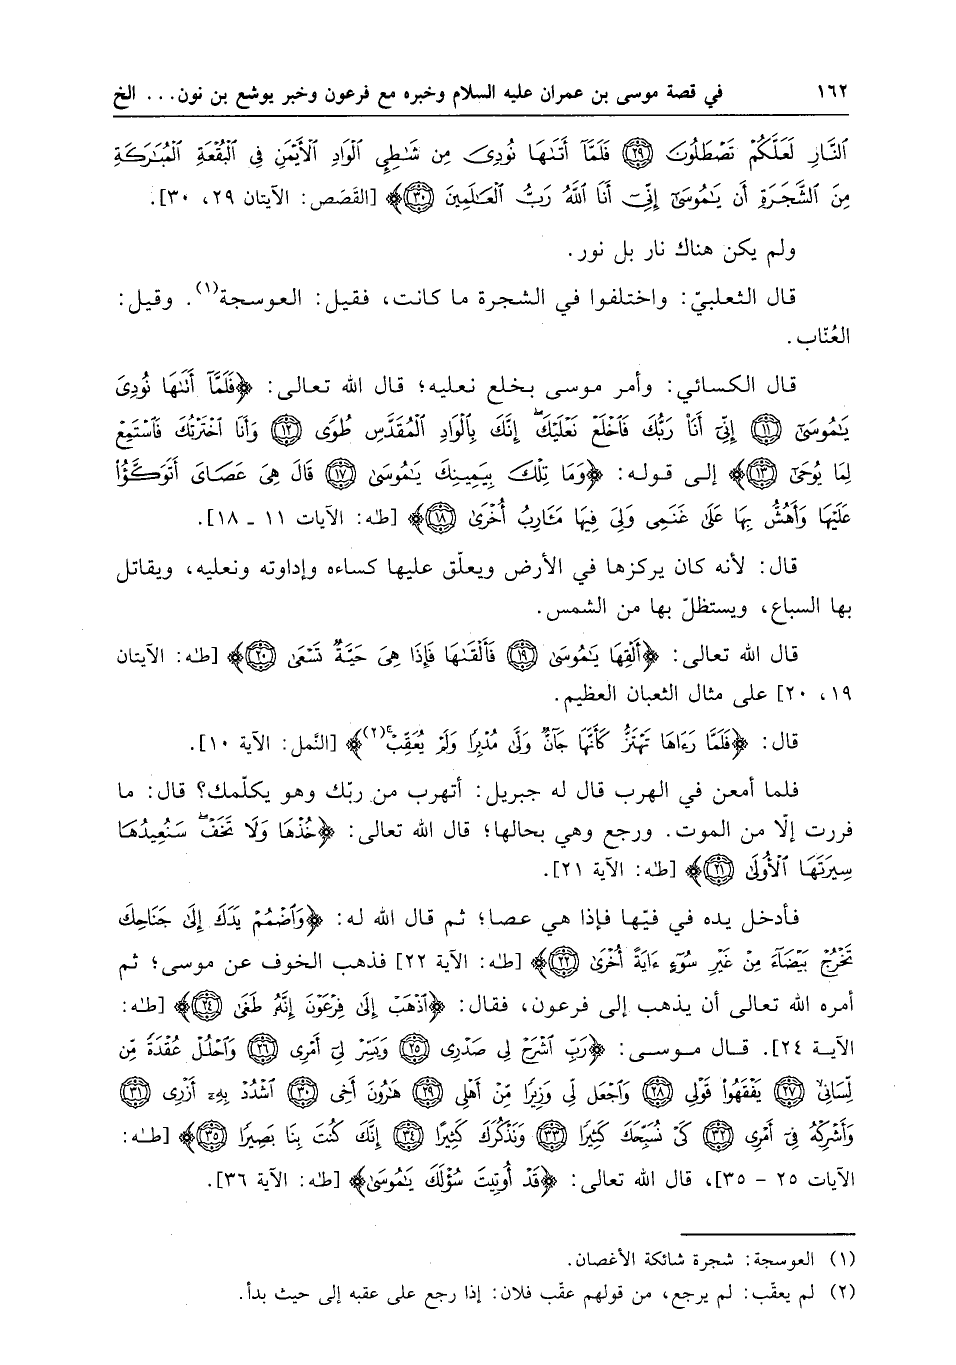 ١٦٢ في قصة موسى بن عمران عليه السلام وخبره مع فرعون وخبر يوشع بن نون... الخ
ٱلنَّارِ لَعَلَّكُمْ تَصْطَلُونَ ﴿٢٩﴾ فَلَمَّآ أَتَىٰهَا نُودِىَ مِن شَـٰطِئِ ٱلْوَادِ ٱلْأَيْمَنِ فِى ٱلْبُقْعَةِ ٱلْمُبَـٰرَكَةِ
مِنَ ٱلشَّجَرَةِ أَن يَـٰمُوسَىٰٓ إِنِّىٓ أَنَا ٱللَّهُ رَبُّ ٱلْعَـٰلَمِينَ ﴿٣٠﴾﴾ [القَصَص: الآيتان ٢٩، ٣٠].
ولم يكن هناك نار بل نور.
قال الثعلبيّ: واختلفوا في الشجرة ما كانت، فقيل: العوسجة(١). وقيل:
العُنّاب.
قال الكسائي: وأمر موسى بخلع نعليه؛ قال الله تعالى: ﴿فَلَمَّآ أَتَىٰهَا نُودِىَ
يَـٰمُوسَىٰٓ ﴿١١﴾ إِنِّىٓ أَنَا۠ رَبُّكَ فَٱخْلَعْ نَعْلَيْكَ ۖ إِنَّكَ بِٱلْوَادِ ٱلْمُقَدَّسِ طُوًى ﴿١٢﴾ وَأَنَا ٱخْتَرْتُكَ فَٱسْتَمِعْ
لِمَا يُوحَىٰٓ ﴿١٣﴾﴾ إلى قوله: ﴿وَمَا تِلْكَ بِيَمِينِكَ يَـٰمُوسَىٰ ﴿١٧﴾ قَالَ هِىَ عَصَاىَ أَتَوَكَّؤُا۟
عَلَيْهَا وَأَهُشُّ بِهَا عَلَىٰ غَنَمِى وَلِىَ فِيهَا مَـَٔارِبُ أُخْرَىٰ ﴿١٨﴾﴾ [طـٰه: الآيات ١١ - ١٨].
قال: لأنه كان يركزها في الأرض ويعلّق عليها كساءه وإداوته ونعليه، ويقاتل
بها السباع، ويستظلّ بها من الشمس.
قال الله تعالى: ﴿أَلْقِهَا يَـٰمُوسَىٰ ﴿١٩﴾ فَأَلْقَىٰهَا فَإِذَا هِىَ حَيَّةٌ تَسْعَىٰ ﴿٢٠﴾﴾ [طـٰه: الآيتان
١٩، ٢٠] على مثال الثعبان العظيم.
قال: ﴿فَلَمَّا رَءَاهَا تَهْتَزُّ كَأَنَّهَا جَآنٌّ وَلَّىٰ مُدْبِرًا وَلَمْ يُعَقِّبْ ۚ(٢)﴾ [النَّمل: الآية ١٠].
فلما أمعن في الهرب قال له جبريل: أتهرب من ربّك وهو يكلّمك؟ قال: ما
فررت إلّا من الموت. ورجع وهي بحالها؛ قال الله تعالى: ﴿خُذْهَا وَلَا تَخَفْ ۖ سَنُعِيدُهَا
سِيرَتَهَا ٱلْأُولَىٰ ﴿٢١﴾﴾ [طـٰه: الآية ٢١].
فأدخل يده في فيّها فإذا هي عصا؛ ثم قال الله له: ﴿وَٱضْمُمْ يَدَكَ إِلَىٰ جَنَاحِكَ
تَخْرُجْ بَيْضَآءَ مِنْ غَيْرِ سُوٓءٍ ءَايَةً أُخْرَىٰ ﴿٢٢﴾﴾ [طـٰه: الآية ٢٢] فذهب الخوف عن موسى؛ ثم
أمره الله تعالى أن يذهب إلى فرعون، فقال: ﴿ٱذْهَبْ إِلَىٰ فِرْعَوْنَ إِنَّهُۥ طَغَىٰ ﴿٢٤﴾﴾ [طـٰه:
الآيـة ٢٤]. قـال مـوسـى: ﴿رَبِّ ٱشْرَحْ لِى صَدْرِى ﴿٢٥﴾ وَيَسِّرْ لِىٓ أَمْرِى ﴿٢٦﴾ وَٱحْلُلْ عُقْدَةً مِّن
لِّسَانِى ﴿٢٧﴾ يَفْقَهُوا۟ قَوْلِى ﴿٢٨﴾ وَٱجْعَل لِّى وَزِيرًا مِّنْ أَهْلِى ﴿٢٩﴾ هَـٰرُونَ أَخِى ﴿٣٠﴾ ٱشْدُدْ بِهِۦٓ أَزْرِى ﴿٣١﴾
وَأَشْرِكْهُ فِىٓ أَمْرِى ﴿٣٢﴾ كَىْ نُسَبِّحَكَ كَثِيرًا ﴿٣٣﴾ وَنَذْكُرَكَ كَثِيرًا ﴿٣٤﴾ إِنَّكَ كُنتَ بِنَا بَصِيرًا ﴿٣٥﴾﴾ [طـٰه:
الآيات ٢٥ - ٣٥]، قال الله تعالى: ﴿قَدْ أُوتِيتَ سُؤْلَكَ يَـٰمُوسَىٰ﴾ [طـٰه: الآية ٣٦].
(١) العوسجة: شجرة شائكة الأغصان.
(٢) لم يعقّب: لم يرجع، من قولهم عقّب فلان: إذا رجع على عقبه إلى حيث بدأ.